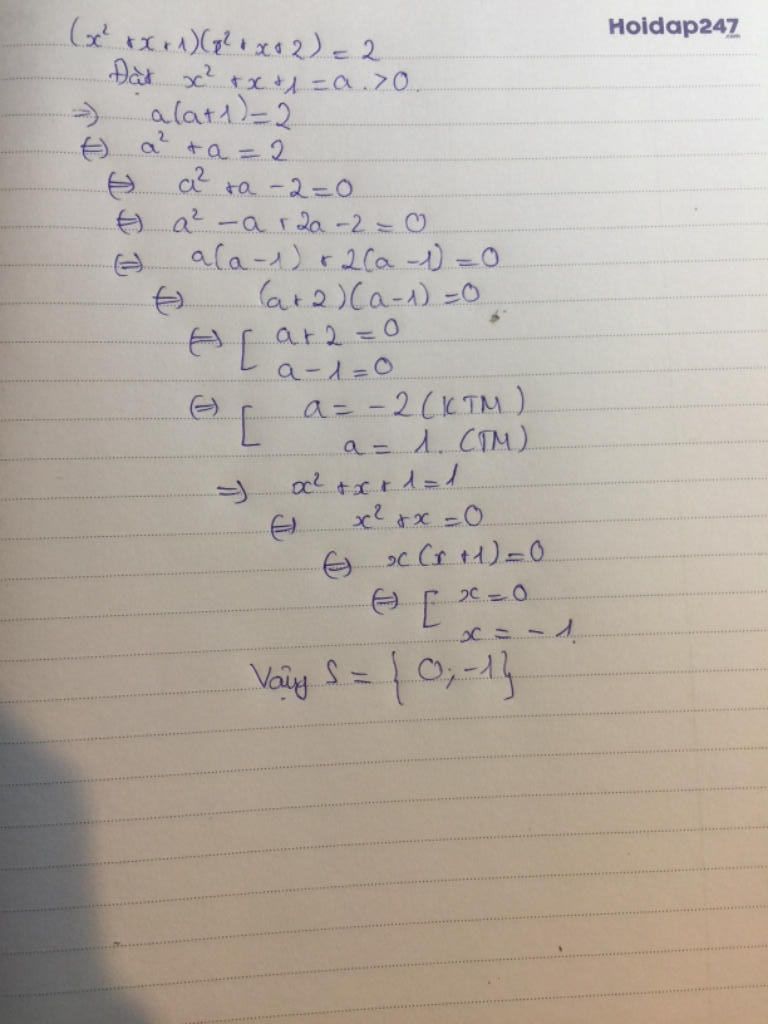 Hoidap247.com
(x² + x + 1)(x² + x + 2) = 2
Đặt x² + x + 1 = a > 0.
=> a(a+1) = 2
<=> a² + a = 2
<=> a² + a - 2 = 0
<=> a² - a + 2a - 2 = 0
<=> a(a-1) + 2(a-1) = 0
<=> (a+2)(a-1) = 0
<=> [ a + 2 = 0
a - 1 = 0
<=> [ a = -2 (KTM)
a = 1. (TM)
=> x² + x + 1 = 1
<=> x² + x = 0
<=> x(x+1) = 0
<=> [ x = 0
x = -1.
Vậy S = {0; -1}